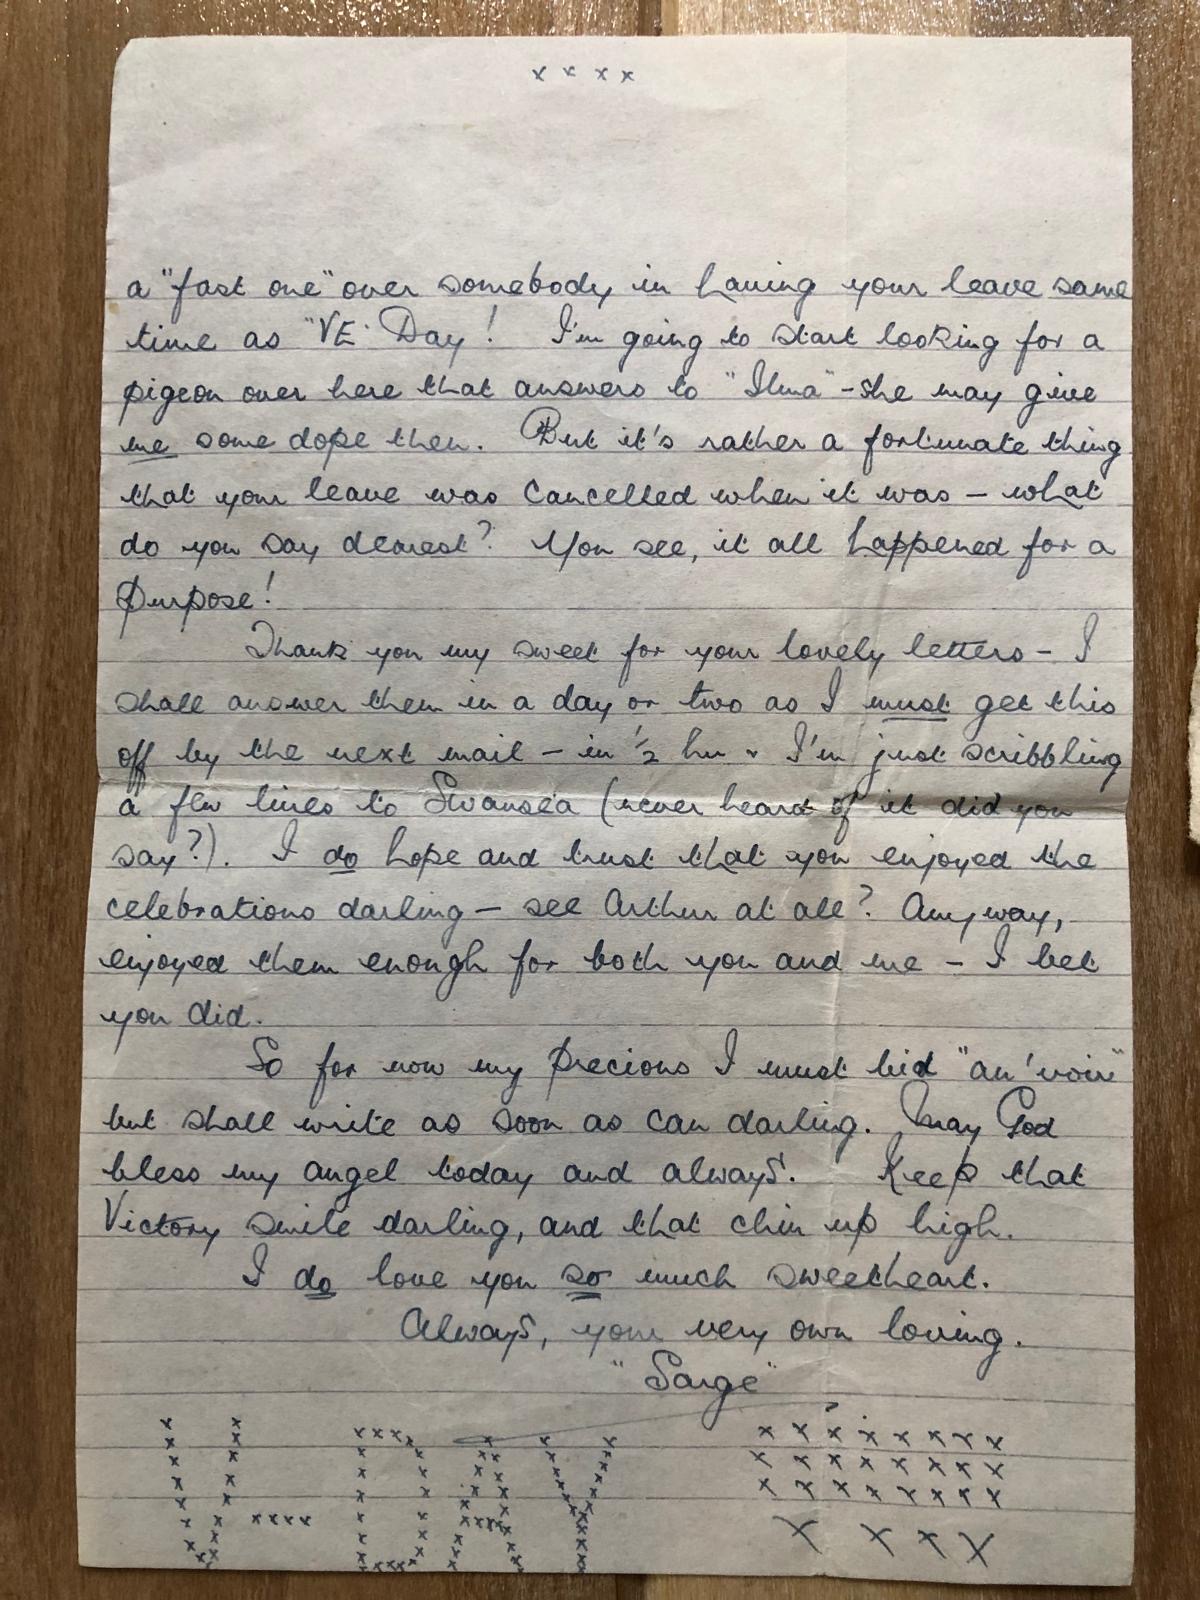 x x x x
a "fast one" over somebody in having your leave same
time as "VE" Day! I'm going to start looking for a
pigeon over here that answers to "Ilma" - she may give
me some dope then. But it's rather a fortunate thing
that your leave was cancelled when it was - what
do you say dearest? You see, it all happened for a
purpose!
Thank you my sweet for your lovely letters - I
shall answer them in a day or two as I must get this
off by the next mail - in 1/2 hr. I'm just scribbling
a few lines to Swansea (never heard of it did you
say?). I do hope and trust that you enjoyed the
celebrations darling - see Arthur at all? Anyway,
enjoyed them enough for both you and me - I bet
you did.
So for now my precious I must bid "au 'voir"
but shall write as soon as can darling. May God
bless my angel today and always. Keep that
Victory smile darling, and that chin up high.
I do love you so much sweetheart.
Always, your very own loving.
"Sarge"
V - DAY
x x x x x x x x
x x x x x x x x
x x x x x x x x
x x x x